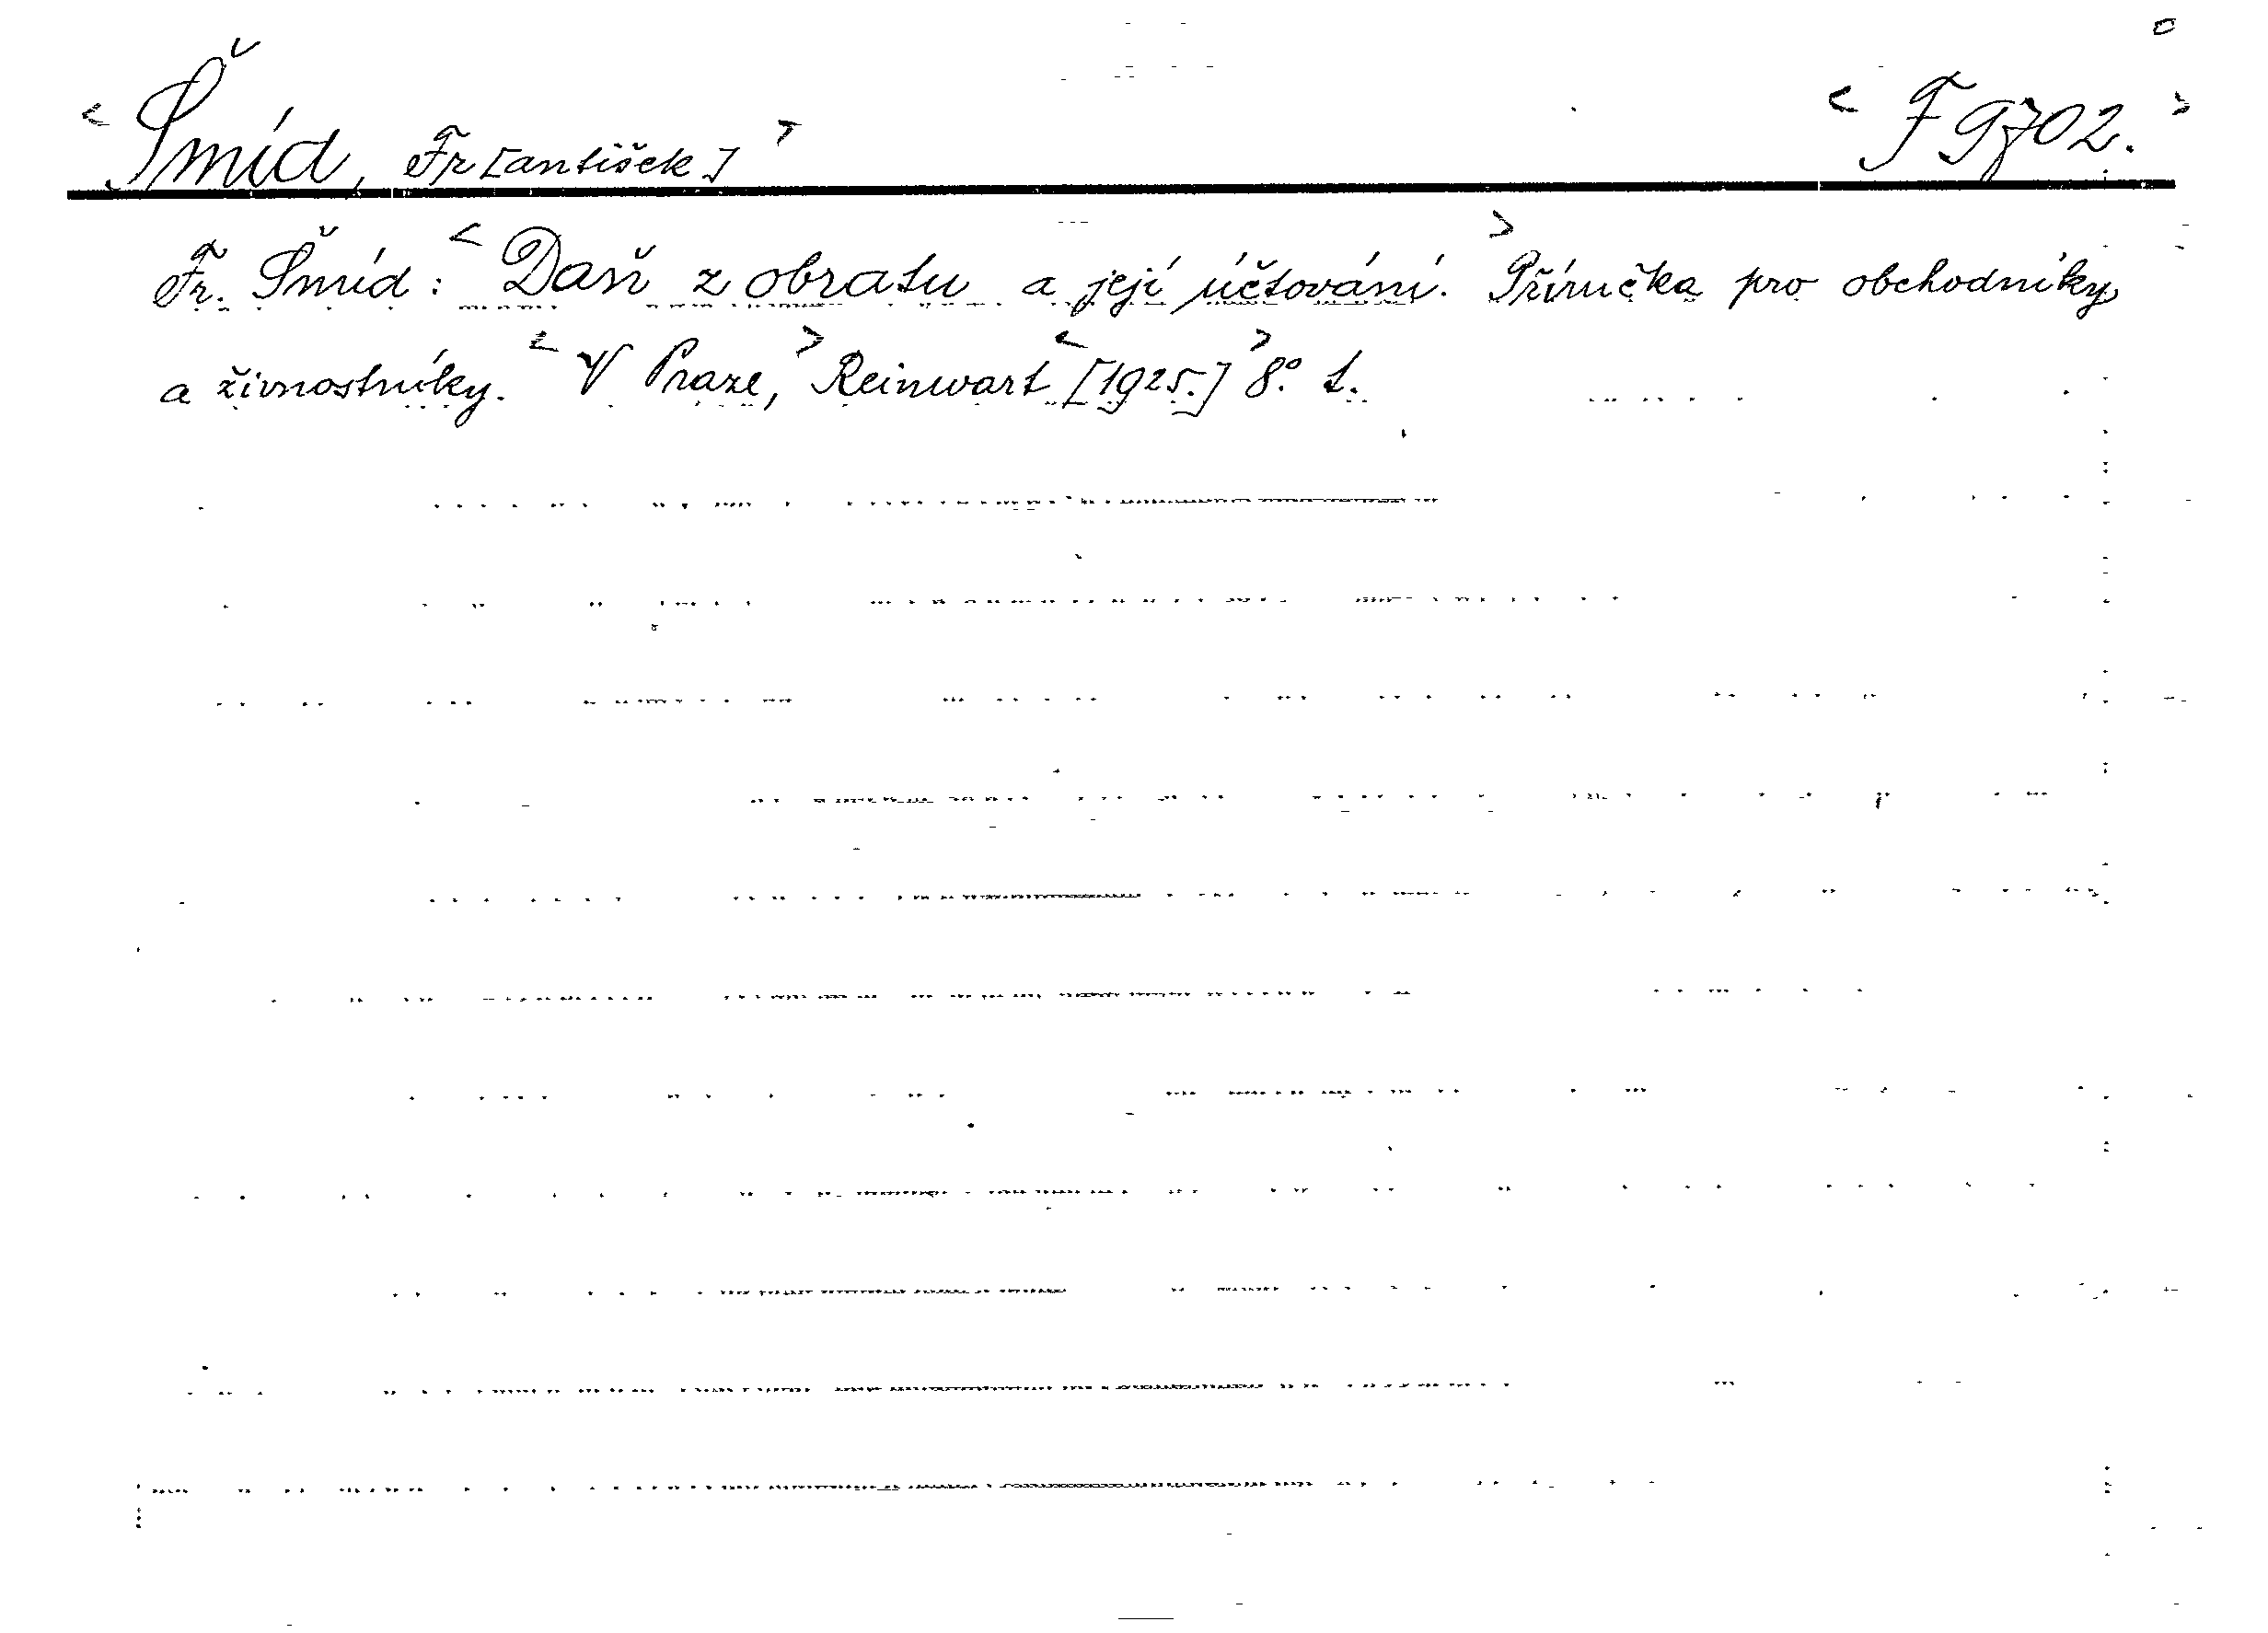 < Šmíd, Fr[antišek] > < F 9702. >
Fr. Šmíd: < Daň z obratu a její účtování. > Příručka pro obchodníky
a živnostníky. < V Praze, > Reinwart < [1925.] > 8.° t.